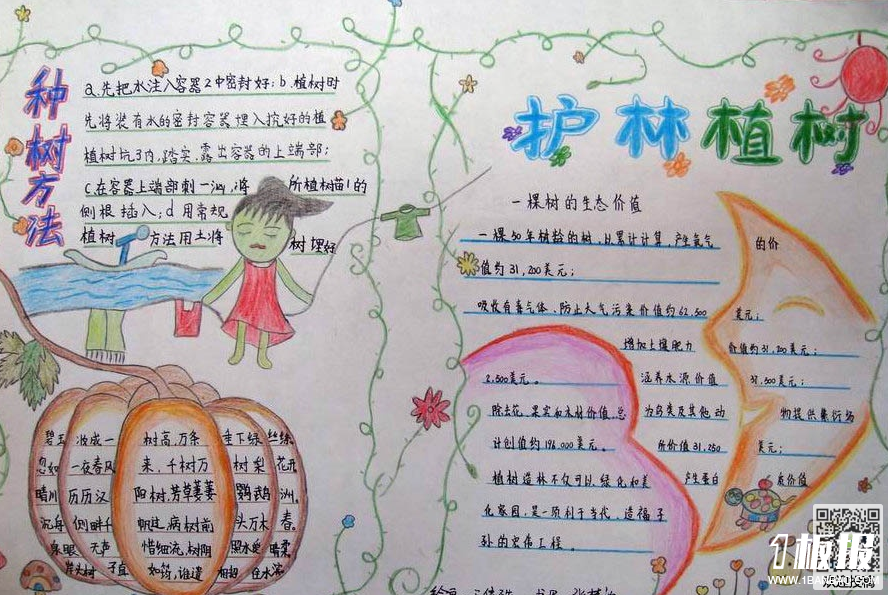 种树方法
a.先把水注入容器2中密封好；b.植树时
先将装有水的密封容器埋入挖好的植
植树坑3内，踏实，露出容器的上端部；
c.在容器上端部刺一洞，将 所植树苗1的
侧根插入；d用常规
植树 方法用土将 树埋好
碧玉 妆成一 树高，万条 垂下绿 丝绦
忽如一夜春风 来，千树万 树梨 花开
晴川历历汉 阳树，芳草萋萋 鹦鹉 洲。
沉舟侧畔千 帆过，病树前 头万木 春。
泉眼 无声 惜细流，树阴 照水爱 晴柔
护林植树
一棵树的生态价值
一棵50年树龄的树，以累计计算，产生氧气 的价
值约31,200美元；
吸收有毒气体、防止大气污染价值约62,500 美元；
增加土壤肥力 价值约31,200美元；
2,500美元。 涵养水源价值 37,500美元；
除去花、果实和木材价值，总 为鸟类及其他动 物提供繁衍场
计创值约196,000美元。 所价值31,250 美元；
植树造林不仅可以绿化和美 产生蛋白 质价值
化家园，是一项利于当代、造福子
孙的宏伟工程。
1板报
WWW.1BANBAO.COM